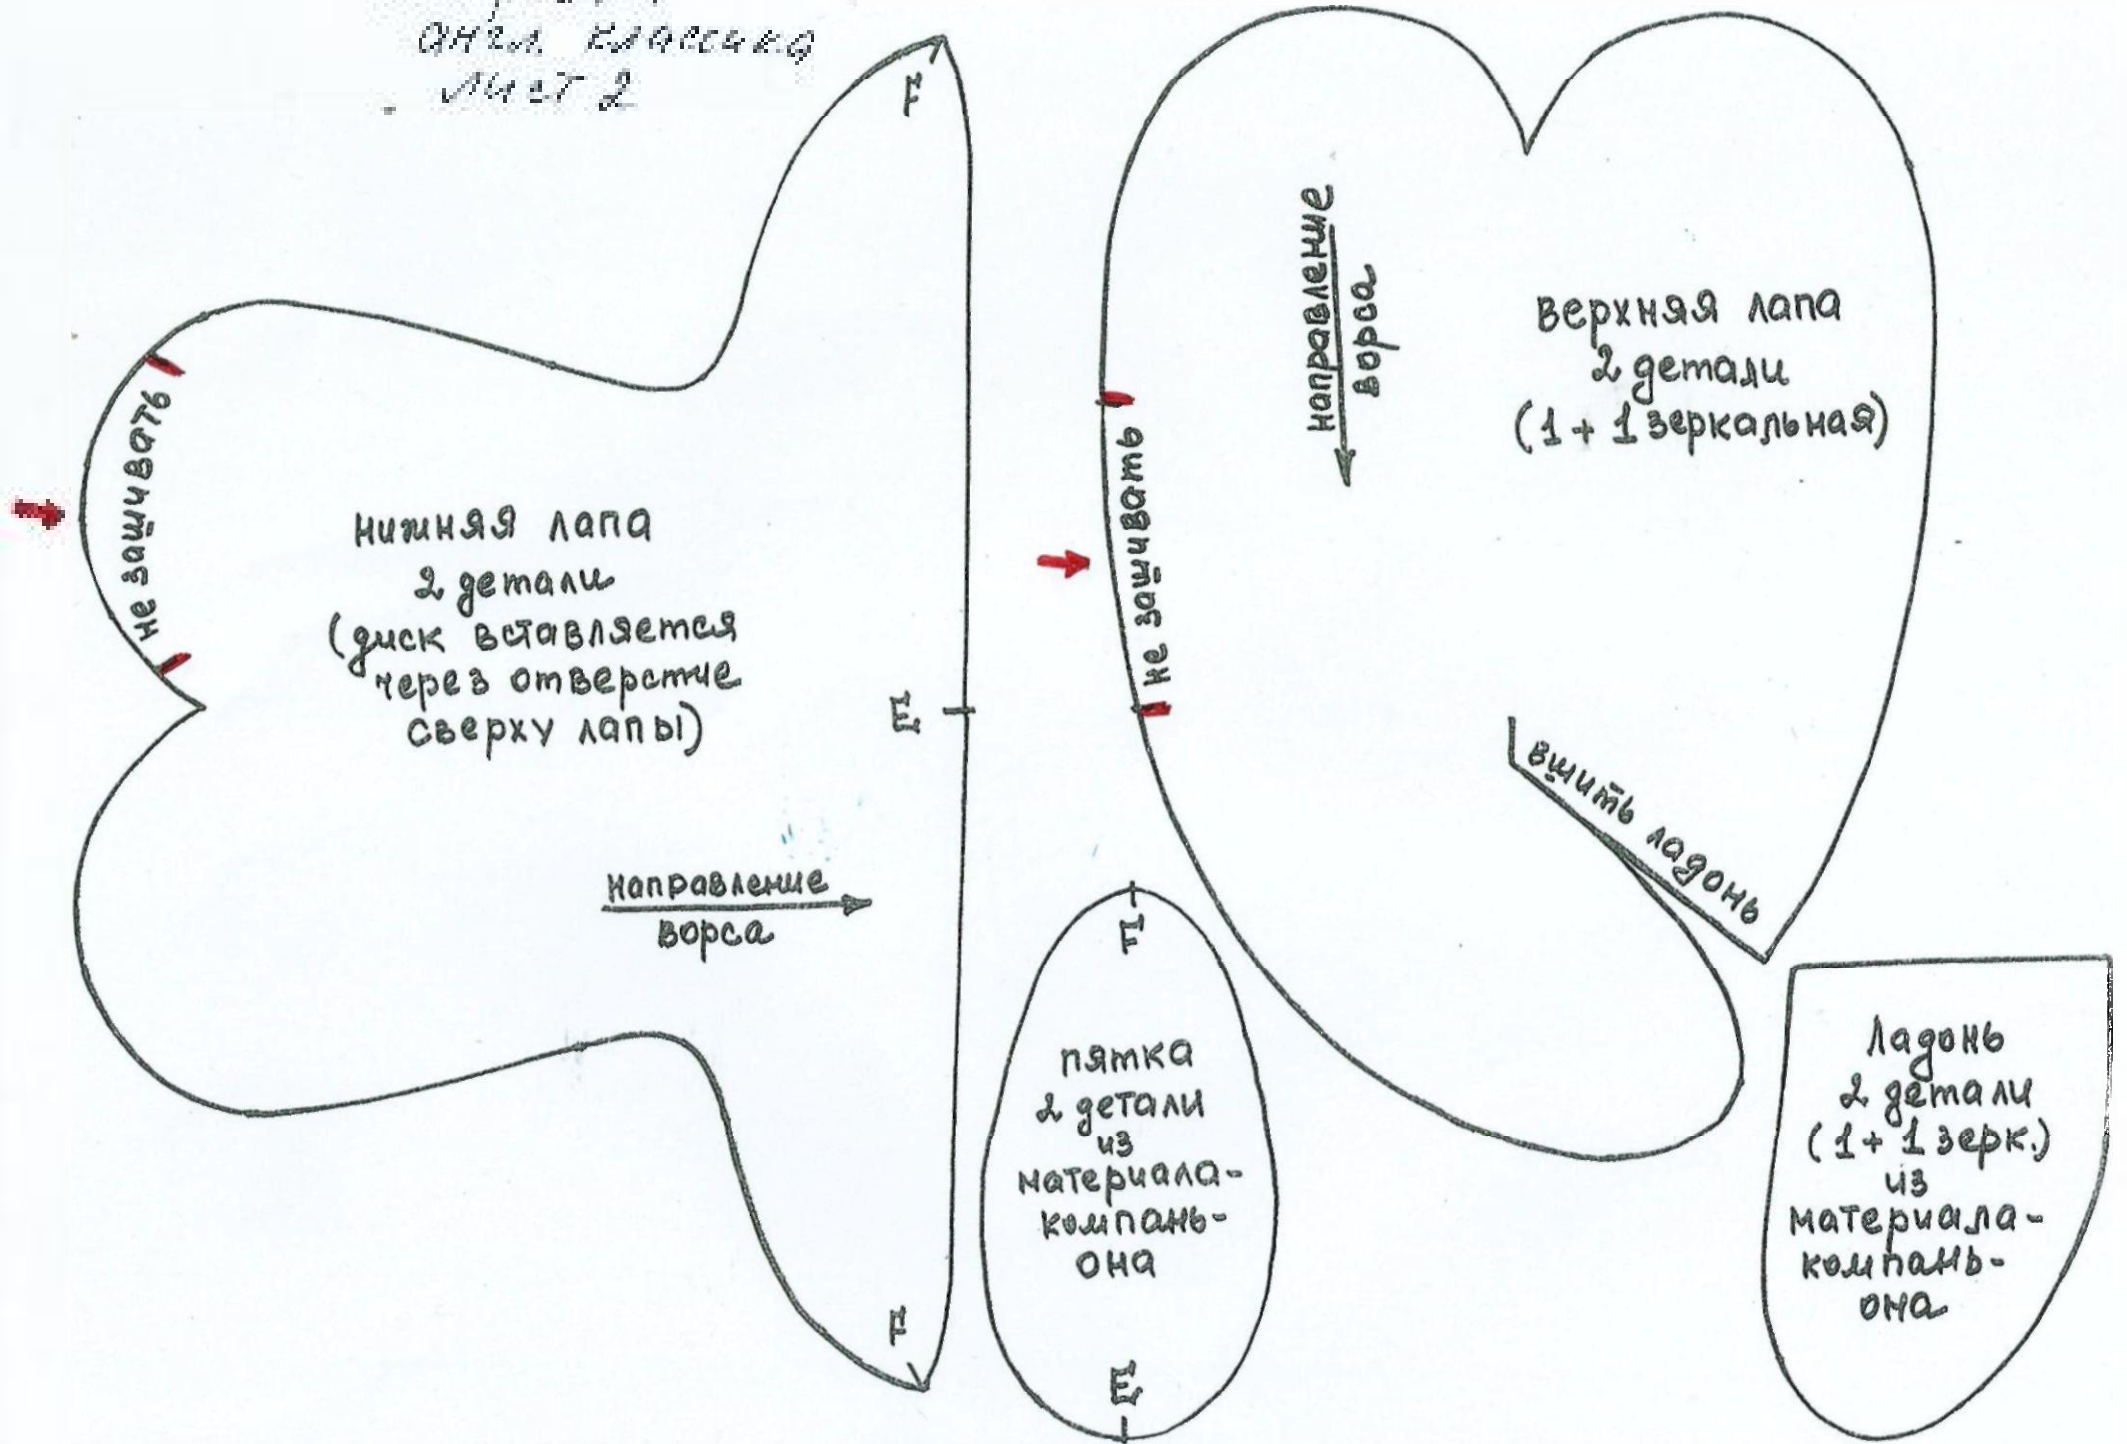 англ. классика
Лист 2
F
не зашивать
нижняя лапа
2 детали
(диск вставляется
через отверстие
сверху лапы)
E
направление
ворса
F
направление
ворса
верхняя лапа
2 детали
(1 + 1 зеркальная)
не зашивать
вшить ладонь
F
пятка
2 детали
из
материала-
компань-
она
E
Ладонь
2 детали
(1 + 1 зерк.)
из
материала-
компань-
она